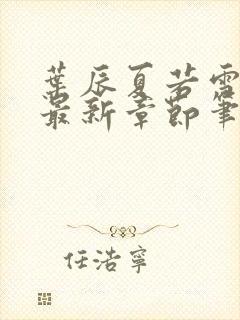 葉辰夏若雪
最新章節筆
任浩寧